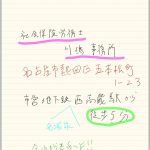 社会保険労務士
事務所
名古屋市熱田区五本松町
1-23
市営地下鉄西高蔵駅から
名城線
徒歩5分